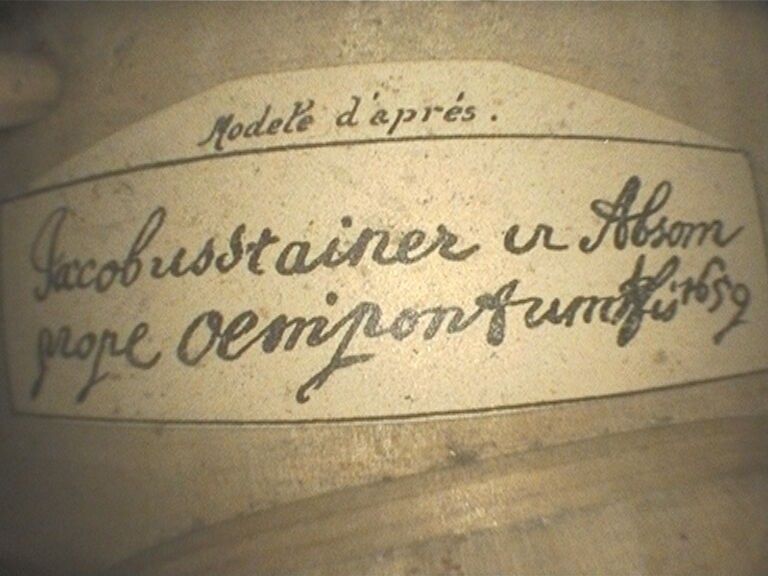 Modelé d'aprés.
Jacobus Stainer in Absom
prope Oenipontum 1659